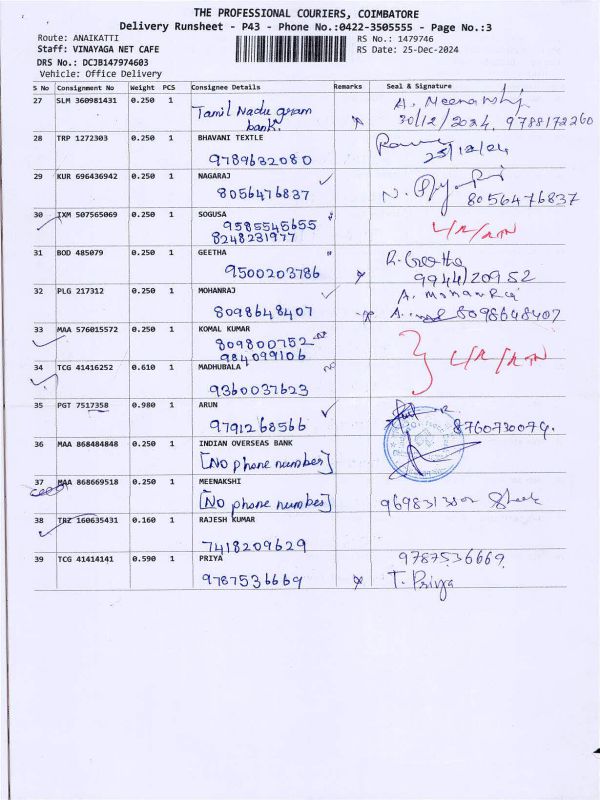 THE PROFESSIONAL COURIERS, COIMBATORE
Delivery Runsheet - P43 - Phone No.:0422-3505555 - Page No.:3
Route: ANAIKATTI RS No.: 1479746
Staff: VINAYAGA NET CAFE RS Date: 25-Dec-2024
DRS No.: DCJB147974603
Vehicle: Office Delivery
S No Consignment No Weight PCS Consignee Details Remarks Seal & Signature
27 SLM 360981431 0.250 1 Tamil Nadu gram
bank.
30/12/2024, 9788172260
28 TRP 1272303 0.250 1 BHAVANI TEXTLE
9789632080 25/12/24
29 KUR 696436942 0.250 1 NAGARAJ
8056476837 8056476837
30 IXM 507565069 0.250 1 SOGUSA
9585545655
8248231977
31 BOD 485079 0.250 1 GEETHA R. Geetha
9500203786 9944120952
32 PLG 217312 0.250 1 MOHANRAJ A. Mohanraj
8098648407 8098648407
33 MAA 576015572 0.250 1 KOMAL KUMAR
809800752
984099106
34 TCG 41416252 0.610 1 MADHUBALA
9360037623
35 PGT 7517358 0.980 1 ARUN
9791268566 8760730079.
36 MAA 868484848 0.250 1 INDIAN OVERSEAS BANK
[No phone number]
37 MAA 868669518 0.250 1 MEENAKSHI
[No phone number]
38 TRZ 160635431 0.160 1 RAJESH KUMAR
7418209629
39 TCG 41414141 0.590 1 PRIYA 9787536669
9787536669 T. Priya